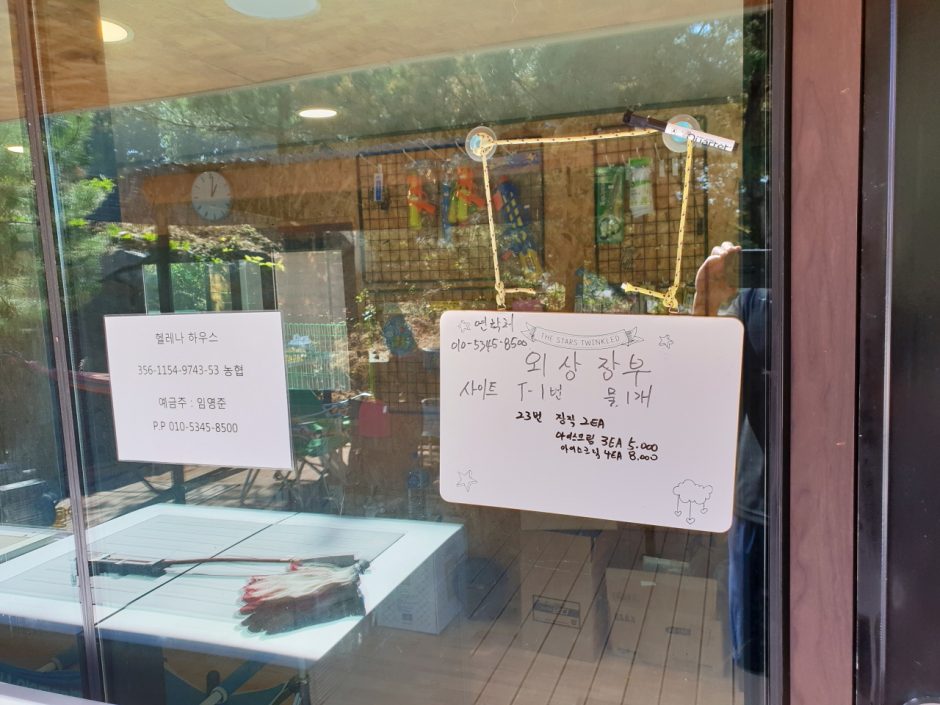 헬레나 하우스
356-1154-9743-53 농협
예금주 : 임영준
P.P 010-5345-8500
연락처
010-5345-8500
THE STARS TWINKLED
외상장부
사이트 T-1번 물1개
23번 장작 2EA
아이스크림 3EA 5.000
아이스크림 4EA 8.000